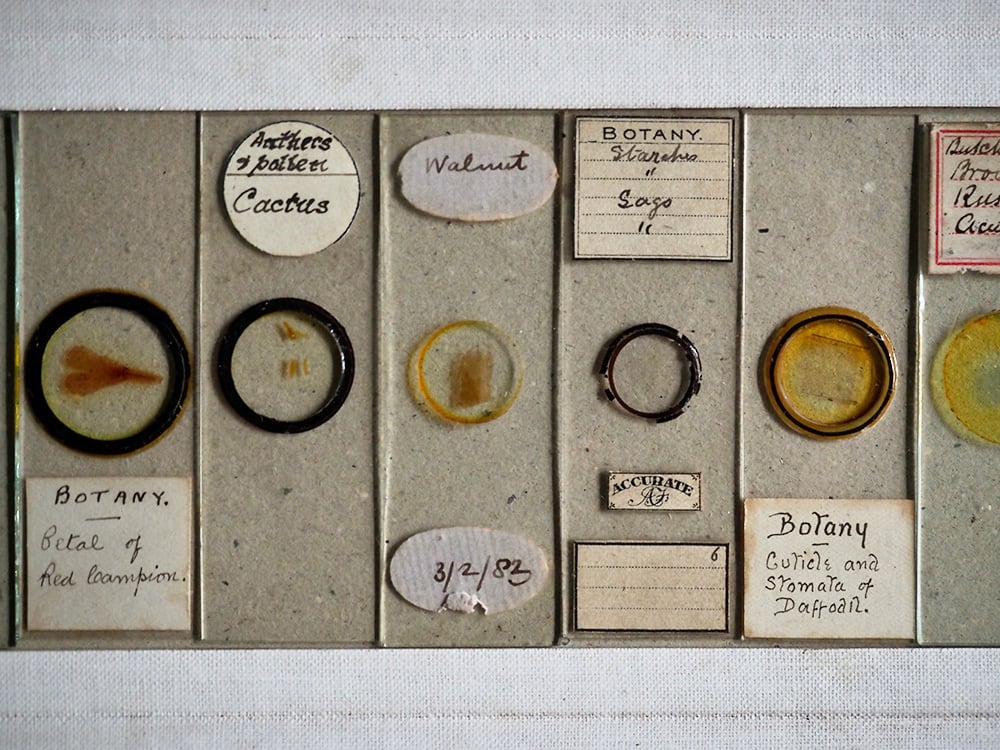 BOTANY.
Petal of
Red Campion.
Anthers
& pollen
Cactus
Walnut
3/2/83
BOTANY.
Starches
"
Sago
"
ACCURATE
6
Botany
Cuticle and
Stomata of
Daffodil.
Butch
Broo
Rus
Acu